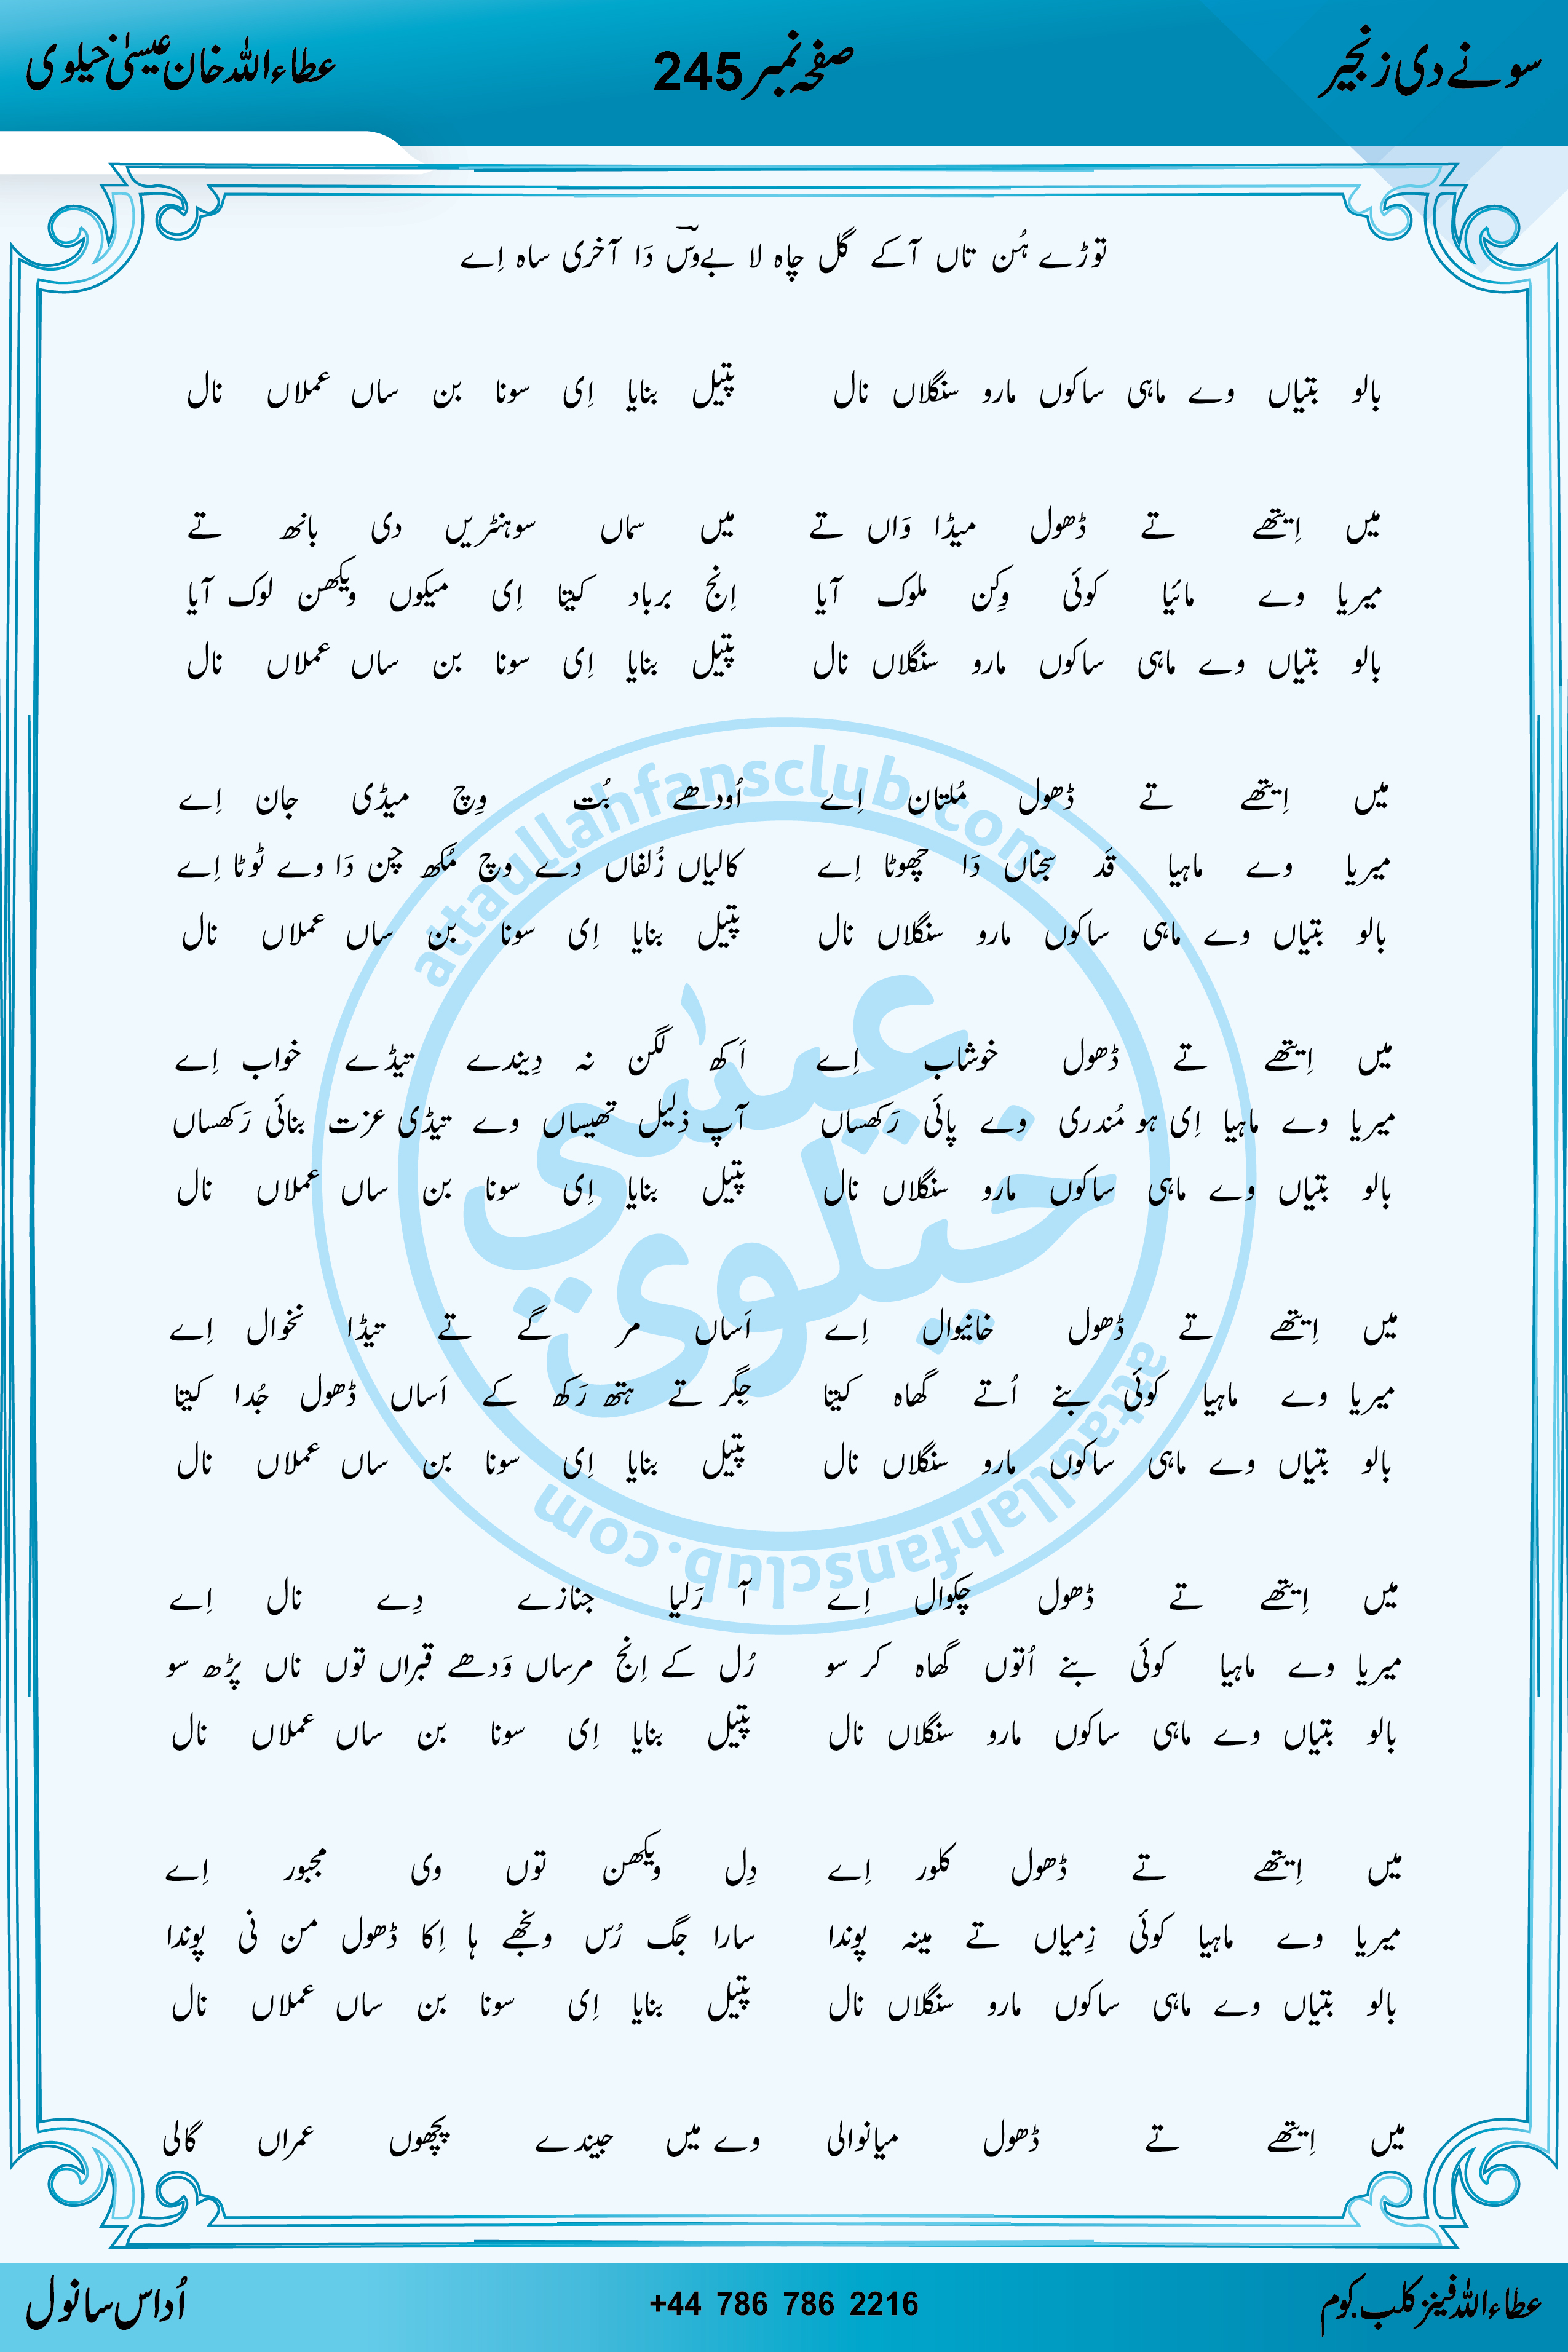 سونے دی زنجیر صفحہ نمبر 245 عطاءاللہ خان عیسیٰ خیلوی
توڑے ہُن تاں آکے گل چاہ لا بےوسؔ دَا آخری ساہ اِے
بالو بتیاں وے ماہی ساکوں مارو سنگلاں نال پتیل بنایا اِی سونا بن ساں عملاں نال
میں اِیتھے تے ڈھول میڈا وَاں تے میں سماں سوہنٹریں دی بانھ تے
میریا وے مائیا کوئی وِکن ملوک آیا اِنج برباد کیتا اِی میکوں ویکھن لوک آیا
بالو بتیاں وے ماہی ساکوں مارو سنگلاں نال پتیل بنایا اِی سونا بن ساں عملاں نال
میں اِیتھے تے ڈھول مُلتان اِے اُودھے بُت وِچ میڈی جان اِے
میریا وے ماہیا قَد سجناں دَا چھوٹا اِے کالیاں زُلفاں دے وچ مُکھ چن دَا وے ٹوٹا اِے
بالو بتیاں وے ماہی ساکوں مارو سنگلاں نال پتیل بنایا اِی سونا بن ساں عملاں نال
میں اِیتھے تے ڈھول خوشاب اِے اَکھ لگن نہ دِیندے تیڈے خواب اِے
میریا وے ماہیا اِی ہو مُندری وے پائی رَکھساں آپ ذلیل تھیساں وے تیڈی عزت بنائی رَکھساں
بالو بتیاں وے ماہی ساکوں مارو سنگلاں نال پتیل بنایا اِی سونا بن ساں عملاں نال
میں اِیتھے تے ڈھول خانیوال اِے اَساں مر گے تے تیڈا نخوال اِے
میریا وے ماہیا کوئی بنے اُتے گھاہ کیتا جِگر تے ہتھ رَکھ کے اَساں ڈھول جُدا کیتا
بالو بتیاں وے ماہی ساکوں مارو سنگلاں نال پتیل بنایا اِی سونا بن ساں عملاں نال
میں اِیتھے تے ڈھول چکوال اِے آ رَلیا جنازے دِے نال اِے
میریا وے ماہیا کوئی بنے اُتوں گھاہ کر سو رُل کے اِنج مرساں وَدھے قبراں توں ناں پڑھ سو
بالو بتیاں وے ماہی ساکوں مارو سنگلاں نال پتیل بنایا اِی سونا بن ساں عملاں نال
میں اِیتھے تے ڈھول کلور اِے دِل ویکھن توں وی مجبور اِے
میریا وے ماہیا کوئی زِمیاں تے مینہ پوندا سارا جگ رُس ونجھے ہا اِکا ڈھول من نی پوندا
بالو بتیاں وے ماہی ساکوں مارو سنگلاں نال پتیل بنایا اِی سونا بن ساں عملاں نال
میں اِیتھے تے ڈھول میانوالی وے میں جیندے پچھوں عمراں گالی
attaullahfansclub.com
عیسیٰ
خیلوی
attaullahfansclub.com
عطاءاللہ فینز کلب.کوم +44 786 786 2216 اُداس سانول